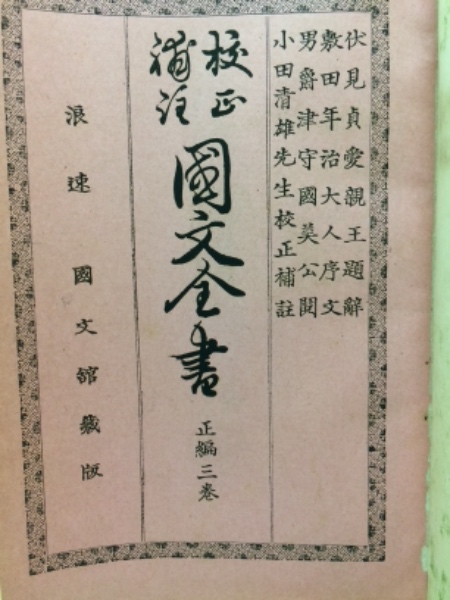 伏見貞愛親王題辭
敷田年治大人序文
男爵津守國美公閲
小田清雄先生校正補註
校正
補註
國文全書
正編三卷
浪速 國文館藏版